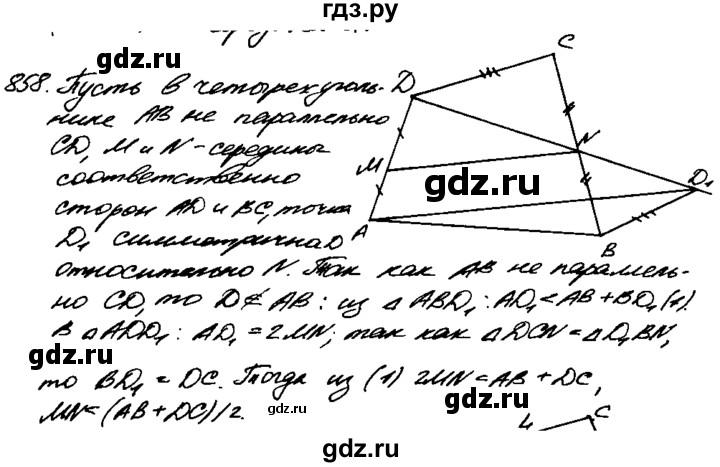 гдз.ру
858. Пусть в четырехуголь-
нике AB не параллельно
CD, M и N - середины
соответственно
сторон AD и BC, точка
D₁ симметрична D
относительно N. Так как AB не параллель-
но CD, то D₁ ∉ AB: из △ABD₁: AD₁ < AB + BD₁ (1).
В △ADD₁: AD₁ = 2MN; так как △DCN = △D₁BN,
то BD₁ = DC. Тогда из (1) 2MN = AB + DC,
MN = (AB + DC)/2.
C
D
N
M
D₁
A
B
gdz.ru
gdz.ru
gdz.ru
gdz.ru
gdz.ru
gdz.ru
C
4
gdz.ru